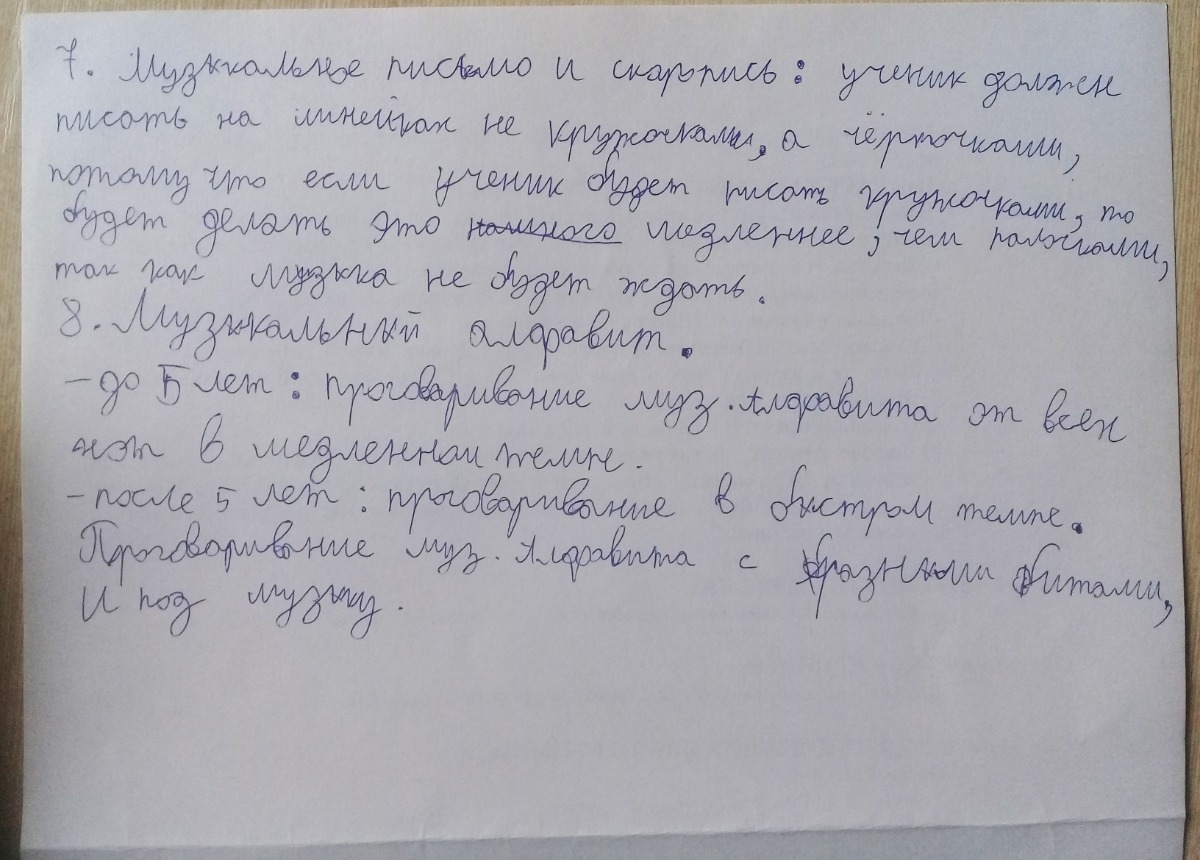 7. Музыкальное письмо и скоропись: ученик должен
писать на линейках не кружочками, а чёрточками,
потому что если ученик будет писать кружочками, то
будет делать это намного медленнее, чем палочками,
так как музыка не будет ждать.
8. Музыкальный алфавит.
- до 5 лет: проговаривание муз. Алфавита от всех
нот в медленном темпе.
- после 5 лет: проговаривание в быстром темпе.
Проговаривание муз. Алфавита с разными битами,
И под музыку.